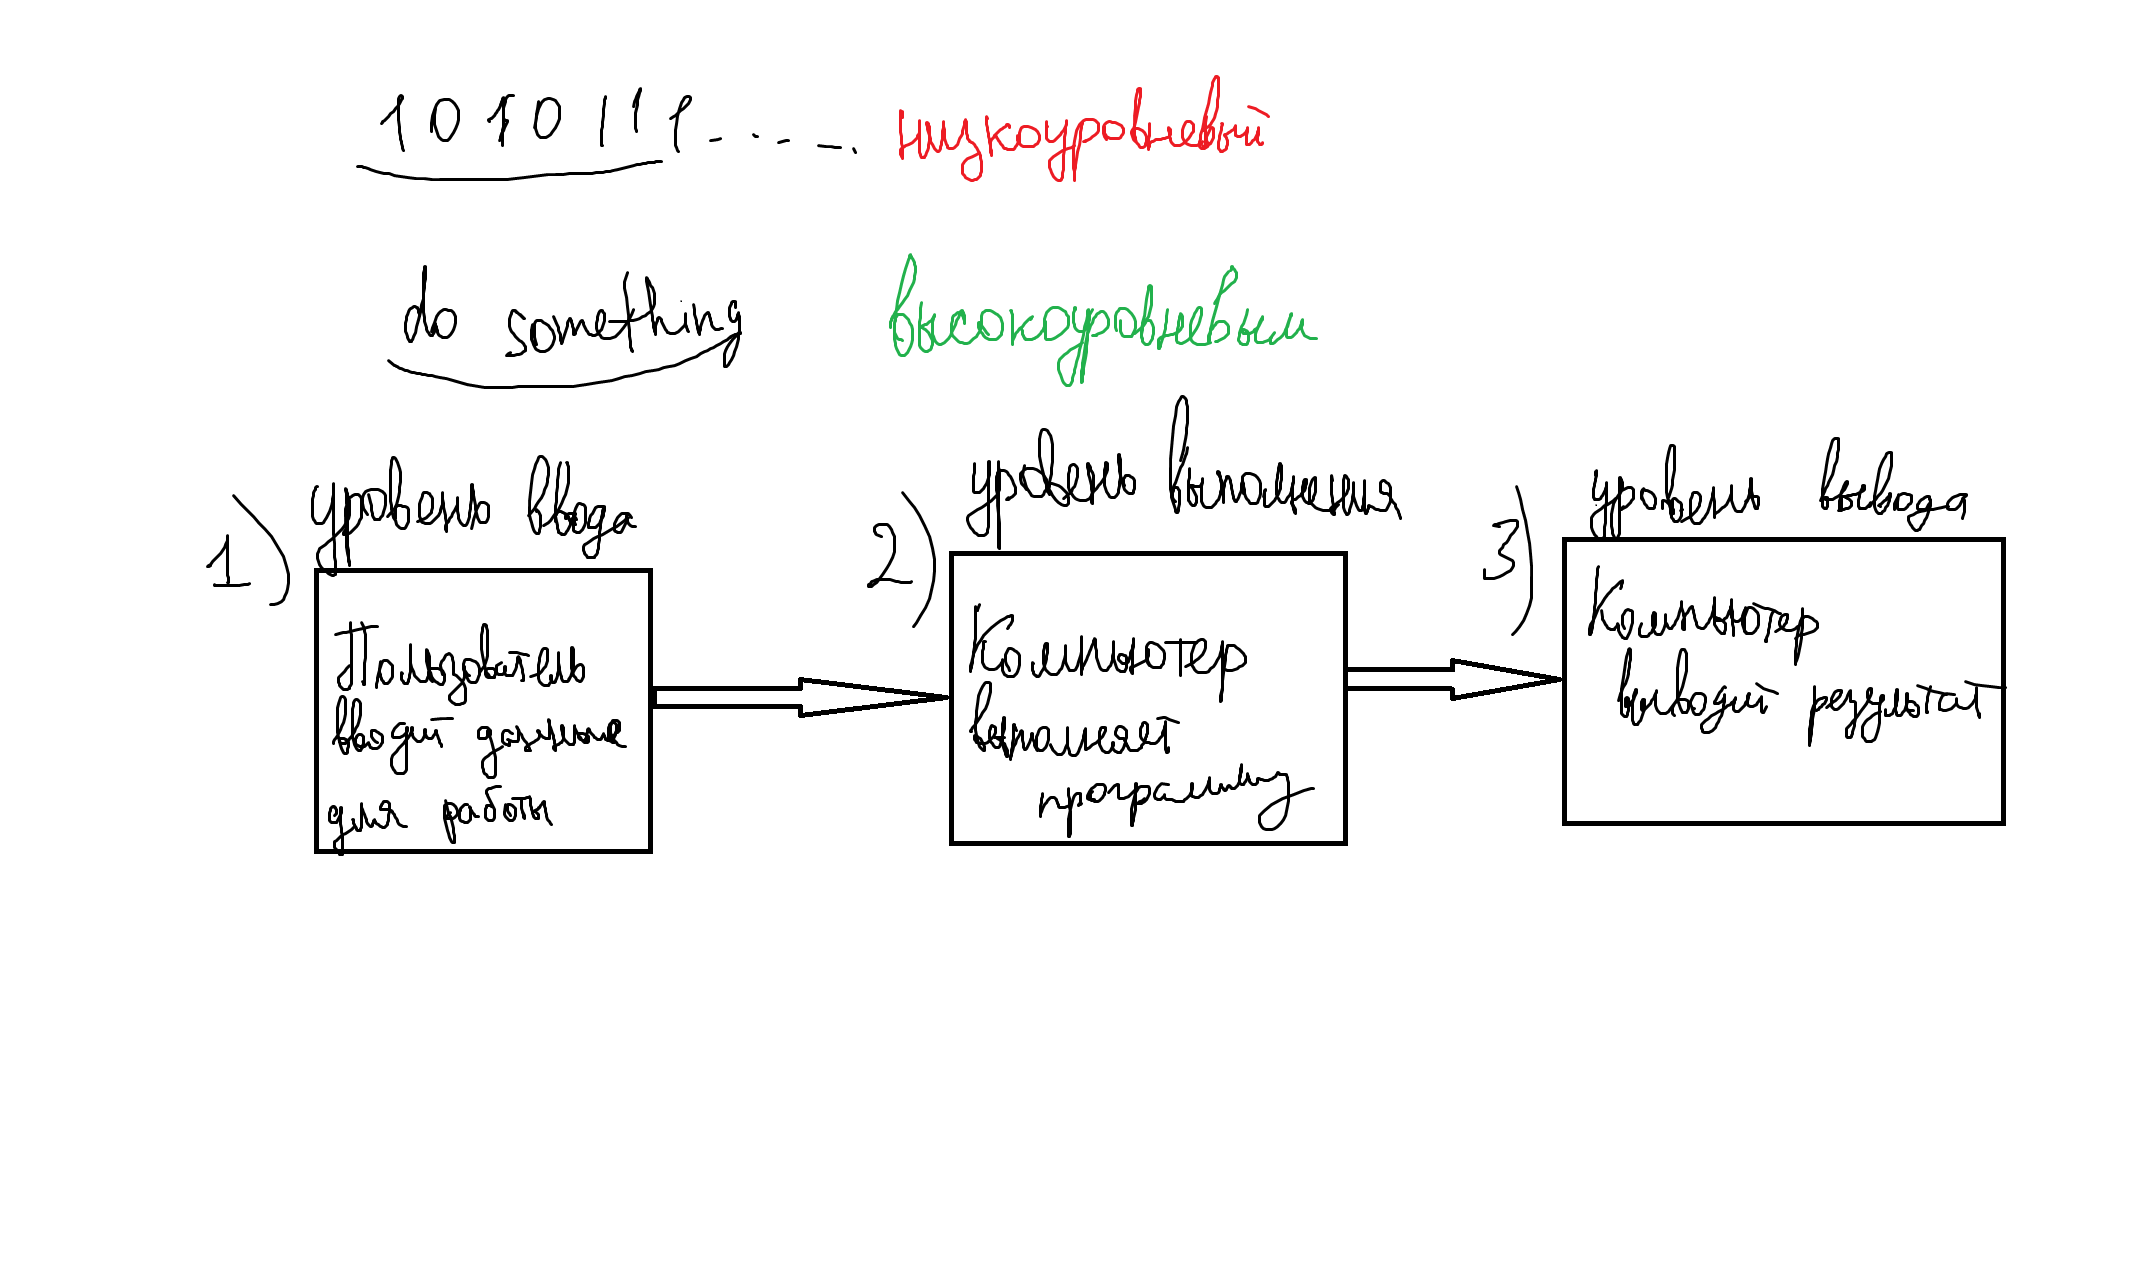 1010111 - . . - - . низкоуровневый
do something высокоуровневым
1) уровень ввода
Пользователь
вводит данные
для работы
2) уровень выполнения
Компьютер
выполняет
программу
3) уровень вывода
Компьютер
выводит результат